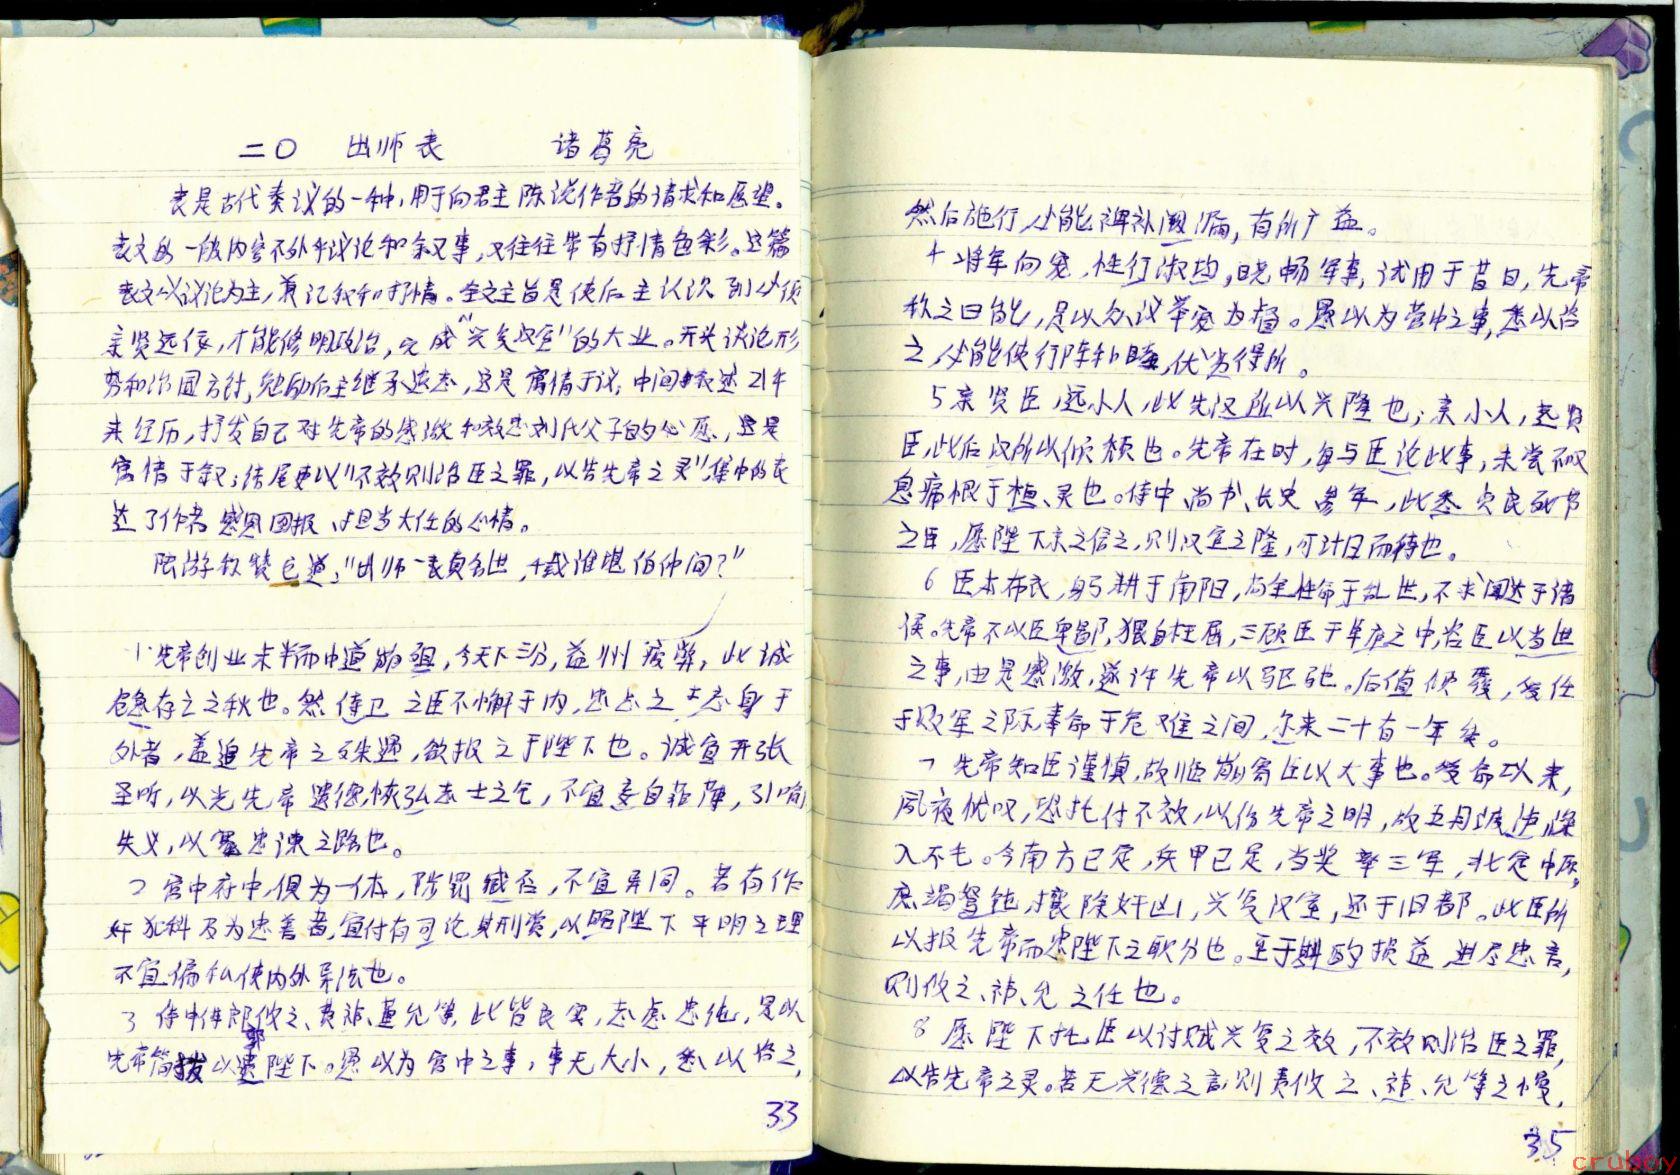 二〇 出师表 诸葛亮
表是古代奏议的一种,用于向君主陈说作者的请求和愿望。
表文的一般内容不外乎议论和叙事,又往往带有抒情色彩。这篇
表文以议论为主,兼记叙和抒情。全文主旨是使后主认识到必须
亲贤远佞,才能修明政治,完成"兴复汉室"的大业。开头谈论形
势和治国方针,勉励后主继承遗志,这是寓情于议;中间叙述21年
来经历,抒发自己对先帝的感激和效忠刘氏父子的心愿,这是
寓情于叙;结尾更以"不效则治臣之罪,以告先帝之灵",集中的表
达了作者感恩图报、担当大任的心情。
陆游钦赞它道:"出师一表真名世,千载谁堪伯仲间?"
1 先帝创业未半而中道崩殂,今天下三分,益州疲弊,此诚
危急存亡之秋也。然侍卫之臣不懈于内,忠志之士忘身于
外者,盖追先帝之殊遇,欲报之于陛下也。诚宜开张
圣听,以光先帝遗德,恢弘志士之气,不宜妄自菲薄,引喻
失义,以塞忠谏之路也。
2 宫中府中,俱为一体,陟罚臧否,不宜异同。若有作
奸犯科及为忠善者,宜付有司论其刑赏,以昭陛下平明之理
不宜偏私使内外异法也。
3 侍中侍郎郭攸之、费祎、董允等,此皆良实,志虑忠纯,是以
先帝简拔以遗陛下。愚以为宫中之事,事无大小,悉以咨之,
33
然后施行,必能裨补阙漏,有所广益。
4 将军向宠,性行淑均,晓畅军事,试用于昔日,先帝
称之曰能,是以众议举宠为督。愚以为营中之事,悉以咨
之,必能使行阵和睦,优劣得所。
5 亲贤臣,远小人,此先汉所以兴隆也;亲小人,远贤
臣,此后汉所以倾颓也。先帝在时,每与臣论此事,未尝不叹
息痛恨于桓、灵也。侍中、尚书、长史、参军,此悉贞良死节
之臣,愿陛下亲之信之,则汉室之隆,可计日而待也。
6 臣本布衣,躬耕于南阳,苟全性命于乱世,不求闻达于诸
侯。先帝不以臣卑鄙,猥自枉屈,三顾臣于草庐之中,咨臣以当世
之事,由是感激,遂许先帝以驱驰。后值倾覆,受任
于败军之际,奉命于危难之间,尔来二十有一年矣。
7 先帝知臣谨慎,故临崩寄臣以大事也。受命以来,
夙夜忧叹,恐托付不效,以伤先帝之明,故五月渡泸,深
入不毛。今南方已定,兵甲已足,当奖率三军,北定中原,
庶竭驽钝,攘除奸凶,兴复汉室,还于旧都。此臣所
以报先帝而忠陛下之职分也。至于斟酌损益,进尽忠言,
则攸之、祎、允之任也。
8 愿陛下托臣以讨贼兴复之效,不效则治臣之罪,
以告先帝之灵。若无兴德之言,则责攸之、祎、允等之慢,
35
cruboy